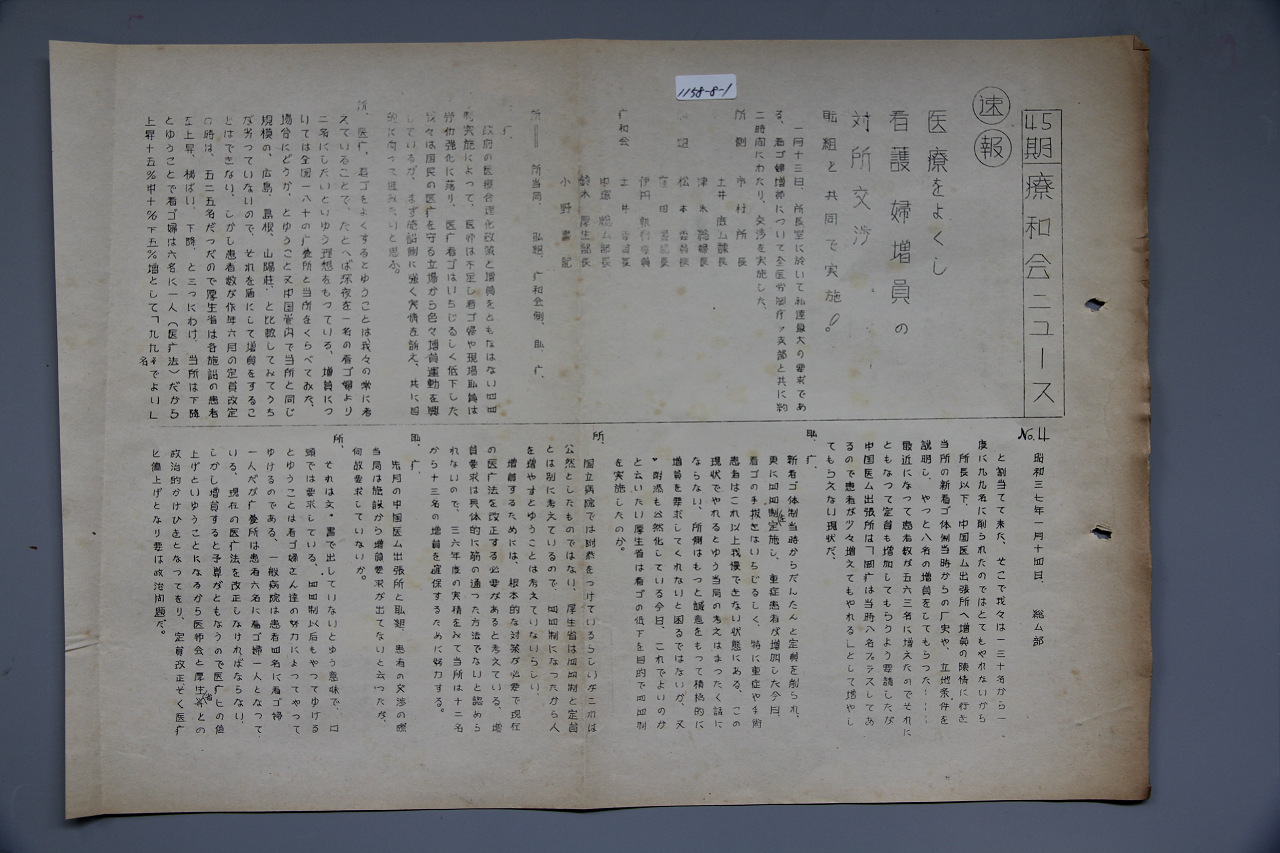 1158-8-1
45期療和会ニュース
No.4
昭和三七年一月十四日、総ム部
速報
医療をよくし
看護婦増員の
対所交渉
職組と共同で実施!
一月十三日、所長室に於いて私達最大の要求であ
る、看ゴ婦増員について全医労
支部と共に約
二時間にわたり、交渉を実施した、
所側 市村所長
土井庶ム課長
津 総婦長
組 松本委員長
窪田書記長
伊内執行委員
广和会 土井委員長
中塚総ム部長
鈴木厚生部長
小野書記
所‖所当局、職組、广和会側、職、广、
广、
政府の医療合理化政策と増員をともなはない四四
制実施によって、医師は不足し看ゴ婦や現場職員は
労仂強化に落り、医广看ゴはいちぢるしく低下した
我々は国民の医广を守る立場から色々増員運動を興
しているが、まず施設側に強く実情を訴え、共に目
的に向って進みたいと思う。
所、医广、看ゴをよくするとゆうことは我々の常に考
えていることで、たとへば深夜を一名の看ゴ婦より
二名にしたいとゆう理想をもつている、増員につ
いては全国一八十の广養所と当所をくらべてみた、
場合にどうか、とゆうこと又中国管内で当所と同じ
規模の、広島、島根、山陽荘、と比較してみてうち
が劣っていないので、それを盾にして増員をするこ
とはできない、しかし患者数が昨年六月の定員改定
の時は、五二五名だつたので厚生省は各施設の患者
を上昇、横ばい、下降、と三つにわけ、当所は下降
とゆうことで看ゴ婦は六名に一人(医广法)だから
上昇十五%中十%下五%増として「九九名でよい」
と割当てて来た、そこで我々は一三十名から一
度に九九名に削られたのではとてもやれないから
所長以下、中国医ム出張所へ増員の陳情に行き
当所の新看ゴ体制当時からの广史や、立地条件を
説明し、やつと八名の増員をしてもらつた!!!
最近になって患者数が五六三名に増えたのでそれに
ともなつて定員も増加してもらうよう要請したが
中国医ム出張所は「岡广は当時八名プラスしてあ
るので患者が少々増えてもやれる」として増やし
てもらえない現状だ、
職、广、
新看ゴ体制当時からだんだんと定員を削られ、
更に四四制実施し、重症患者が増加した今日、
看ゴの手抜きはいちぢるしく、特に重症や手術
患者はこれ以上我慢できない状態にある、この
現状でやれるとゆう当局の考えはまつたく話に
ならない、所側はもつと誠意をもつて積極的に
増員を要求してくれないと困るではないか、又
附添も公然化している今日、これでよいのか
と云いたい厚生省は看ゴの低下を目的で四四制
を実施したのか。
所、
国立病院では附添をつけているらしいがこれは
公然としたものではない、厚生省は四四制と定員
とは別に考えているので、四四制になつたから人
を増やすとゆうことは考えていないらしい、
増員するためには、根本的な対策が必要で現在
の医广法を改正する必要があると考えている、増
員要求は具体的に筋の通つた方法でないと認めら
れないので、三六年度の実積をみて当所は十二名
から十三名の増員を確保するために努力する。
職、广、
先月の中国医ム出張所と職組、患者の交渉の際
当局は施設から増員要求が出てないと云つたが、
何故要求していないか。
所、
それは文書で出していないとゆう意味で、口
頭では要求している、四四制以后もやつてゆける
とゆうことは看ゴ婦さん達の努力によつてやつて
ゆけるのである、一般病院は患者四名に看ゴ婦
一人だが广養所は患者六名に看ゴ婦一人となつて
いる、現在の医广法を改正しなければならない、
しかし増員すると予算がともなうので医广ヒの値
上げといゆうことになるから医師会と厚生省との
政治的かけひきとなつてをり、定員改正そく医广
ヒ値上げとなり要は政治問題だ。